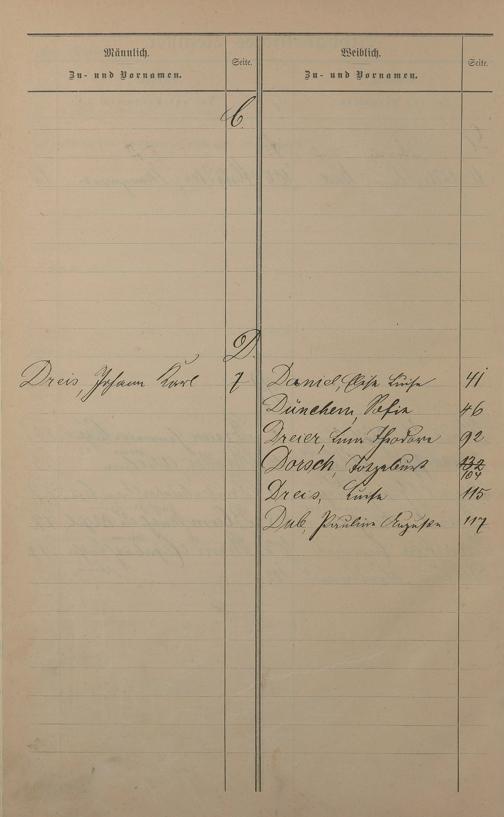 Männlich.
Zu- und Vornamen.
Seite.
Weiblich.
Zu- und Vornamen.
Seite.
C.
D.
Dreis, Johann Karl 7
Daniel, Elise Luise 41
Dünchem, Sofie 46
Dreier, Emma Theodore 92
Dorsch, Totgeburt 132
104
Dreis, Luise 115
Dub, Pauline Auguste 117